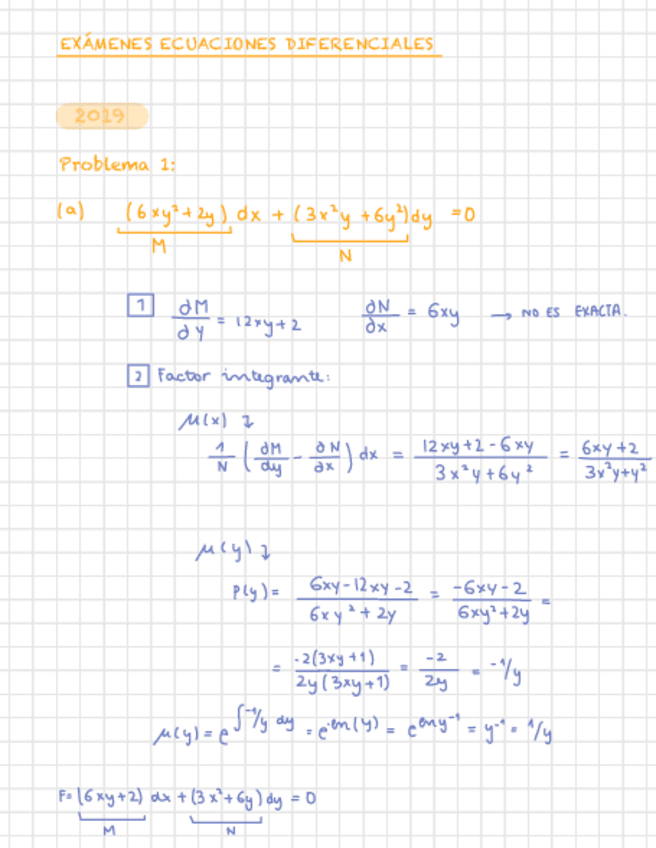 EXÁMENES ECUACIONES DIFERENCIALES
2019
Problema 1:
(a) (6xy²+2y) dx + (3x²y +6y²)dy =0
M N
1 ∂M/∂y = 12xy+2 ∂N/∂x = 6xy → NO ES EXACTA.
2 Factor integrante:
μ(x) ↴
1/N (∂M/dy - ∂N/∂x) dx = (12xy+2-6xy)/(3x²y+6y²) = (6xy+2)/(3x²y+y²)
μ(y) ↴
P(y)= (6xy-12xy-2)/(6xy²+2y) = (-6xy-2)/(6xy²+2y) =
= -2(3xy+1)/2y(3xy+1) = -2/2y = -1/y
μ(y) = e^∫-1/y dy = e^-ln(y) = e^ln y⁻¹ = y⁻¹ = 1/y
F= (6xy+2) dx + (3x²+6y) dy = 0
M N